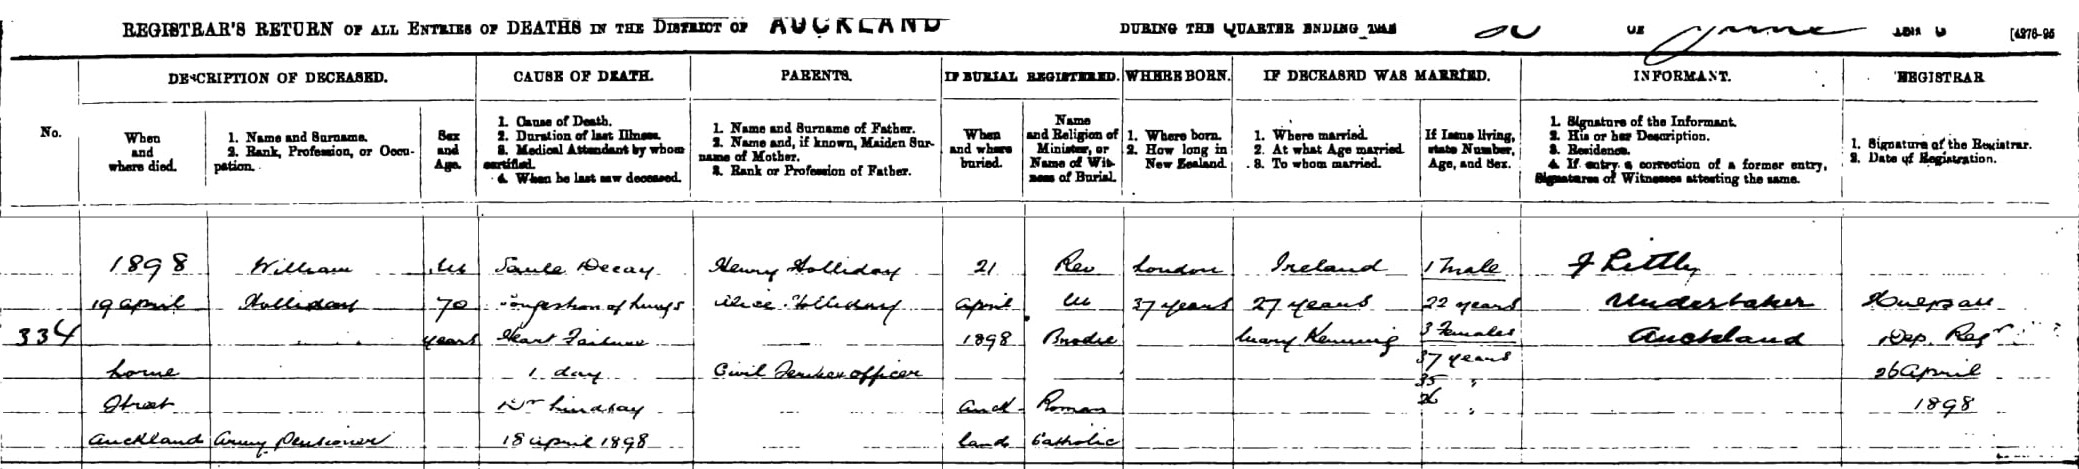 REGISTRAR'S RETURN OF ALL ENTRIES OF DEATHS IN THE DISTRICT OF AUCKLAND DURING THE QUARTER ENDING THE June [4276-95
DESCRIPTION OF DECEASED. CAUSE OF DEATH. PARENTS. IF BURIAL REGISTERED. WHERE BORN. IF DECEASED WAS MARRIED. INFORMANT. REGISTRAR
No.
When
and
where died.
1. Name and Surname.
2. Rank, Profession, or Occu-
pation.
Sex
and
Age.
1. Cause of Death.
2. Duration of last Illness.
3. Medical Attendant by whom
certified.
4. When he last saw deceased.
1. Name and Surname of Father.
2. Name and, if known, Maiden Sur-
name of Mother.
3. Rank or Profession of Father.
When
and where
buried.
Name
and Religion of
Minister, or
Name of Wit-
ness of Burial.
1. Where born.
2. How long in
New Zealand.
1. Where married.
2. At what Age married
3. To whom married.
If Issue living,
state Number,
Age, and Sex.
1. Signature of the Informant.
2. His or her Description.
3. Residence.
4. If entry a correction of a former entry,
Signatures of Witnesses attesting the same.
1. Signature of the Registrar.
2. Date of Registration.
334
1898
19 April
Lorne
Street
Auckland
William
Holliday
Army Pensioner
M
70
years
Senile Decay
Congestion of Lungs
Heart Failure
1 day
Dr Lindsay
18 April 1898
Henry Holliday
Alice Holliday
Civil Service Officer
21
April
1898
Auck
land
Rev
M
Brodie
Roman
Catholic
London
37 years
Ireland
27 years
Mary
1 Male
22 years
3 Females
37 years
35 "
26 "
J Littly
Undertaker
Auckland
Dep. Regr
26 April
1898